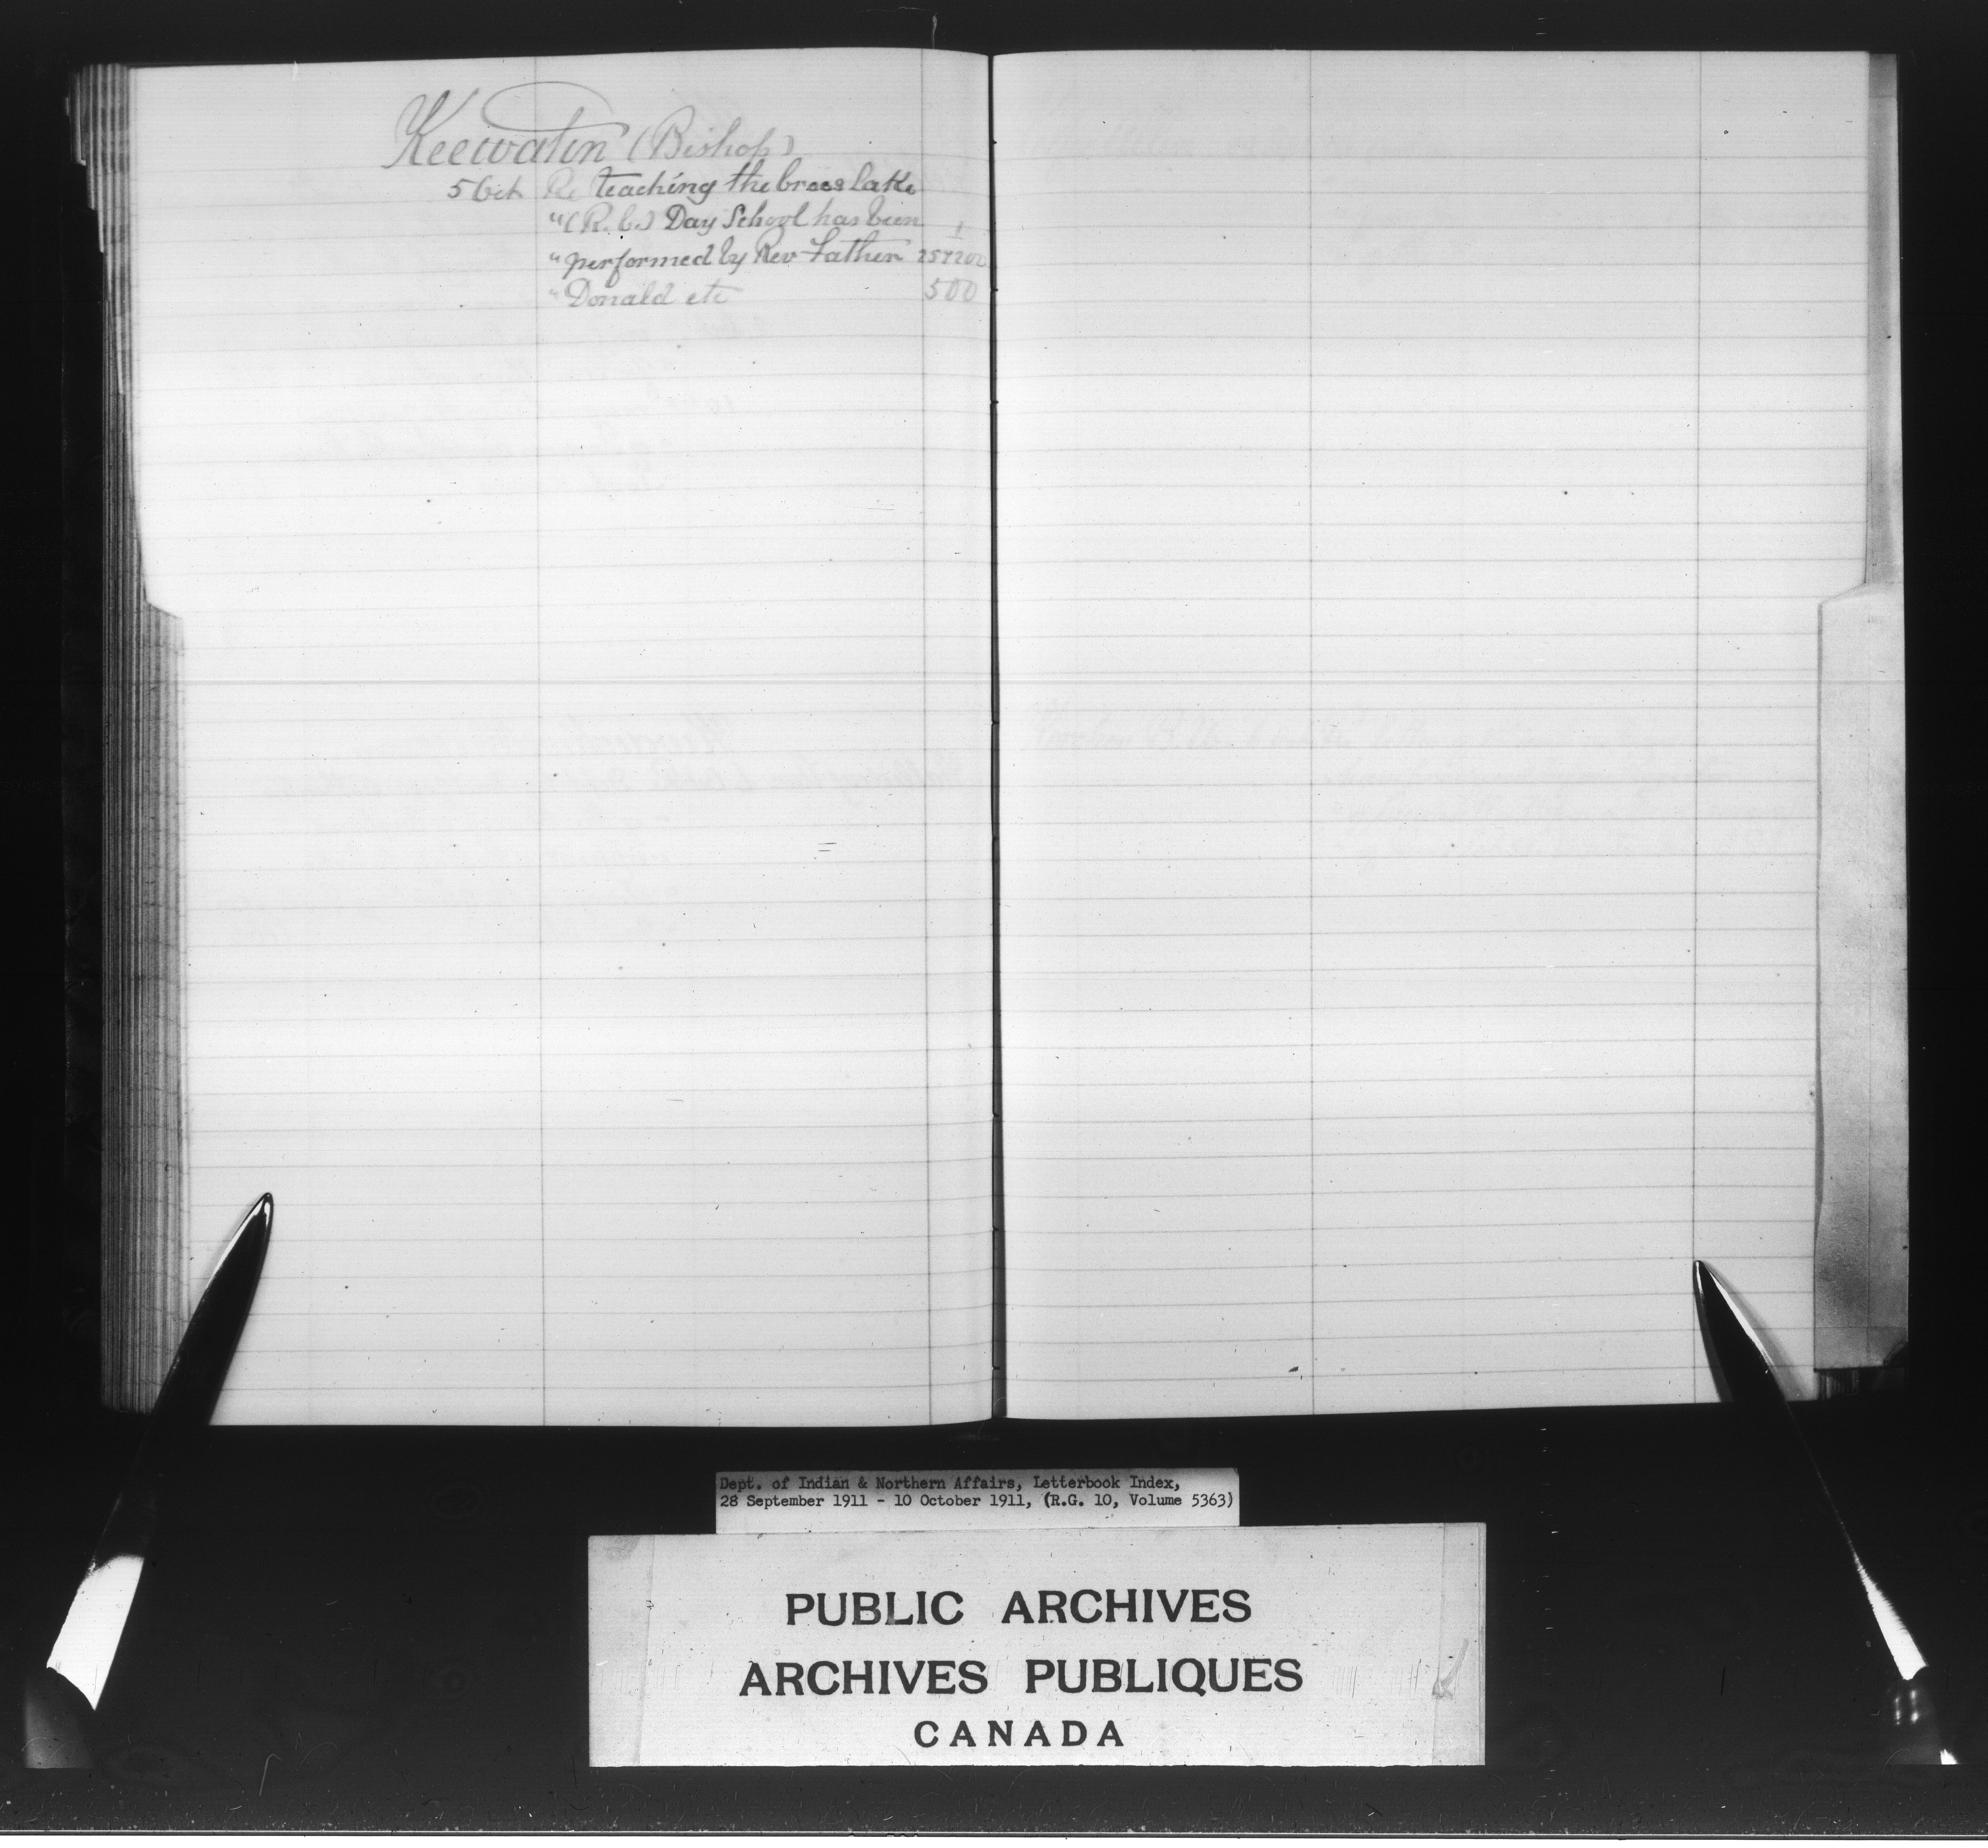 Keewatin (Bishop)
5 Oct Re teaching the Cross Lake
" (R.C.) Day School has been 1
" performed by Rev Father
" Donald etc 500
Dept. of Indian & Northern Affairs, Letterbook Index,
28 September 1911 - 10 October 1911, (R.G. 10, Volume 5363)
PUBLIC ARCHIVES
ARCHIVES PUBLIQUES
CANADA